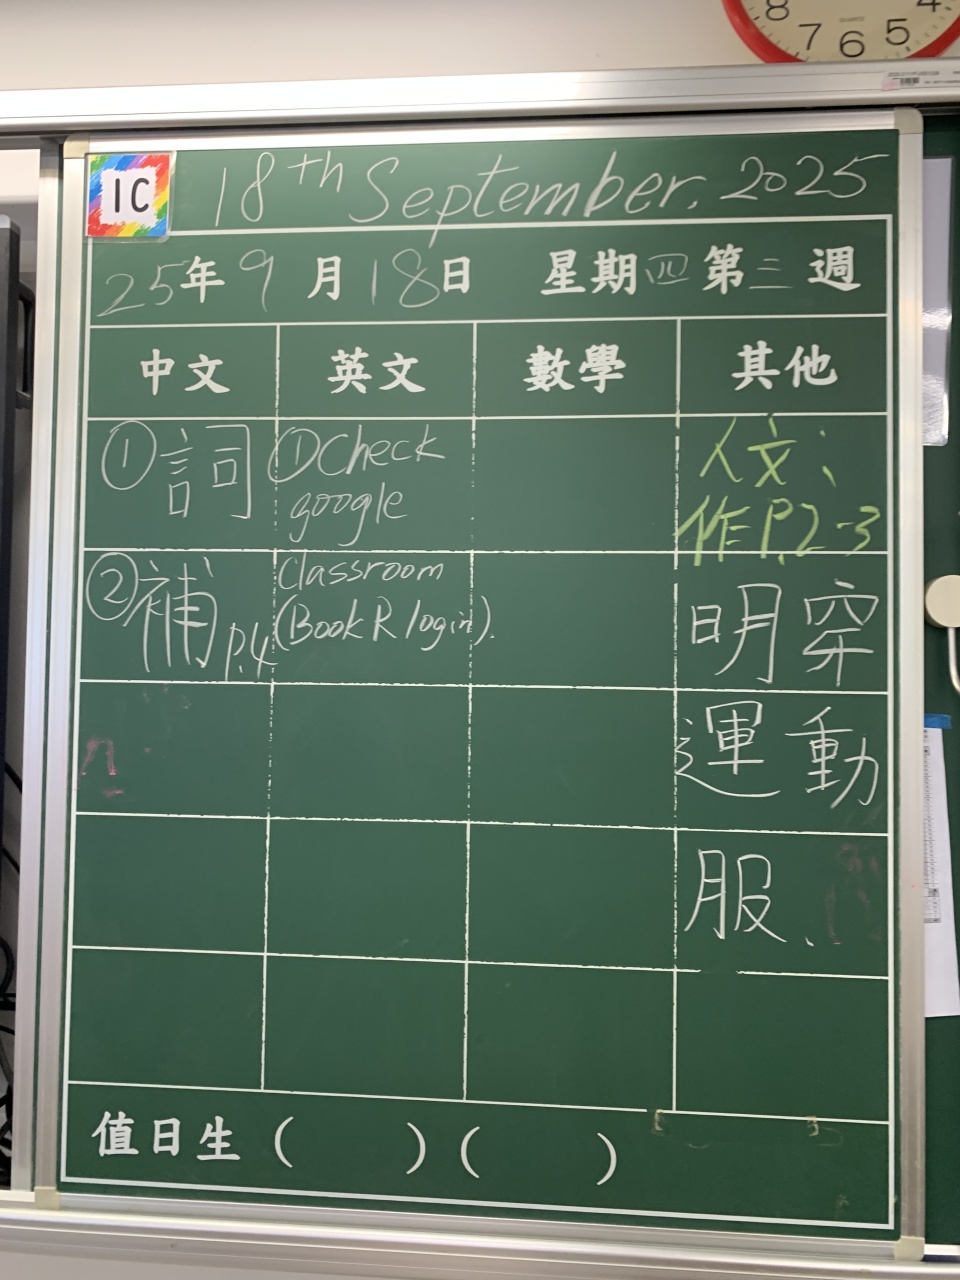 8 7 6 5 4
1C
18th September, 2025
25年9月18日 星期四第三週
中文 英文 數學 其他
①詞 ①Check google 人文：作P.2-3
②補 P.4 Classroom (Book R login). 明穿
運動
服、
值日生 ( ) ( )